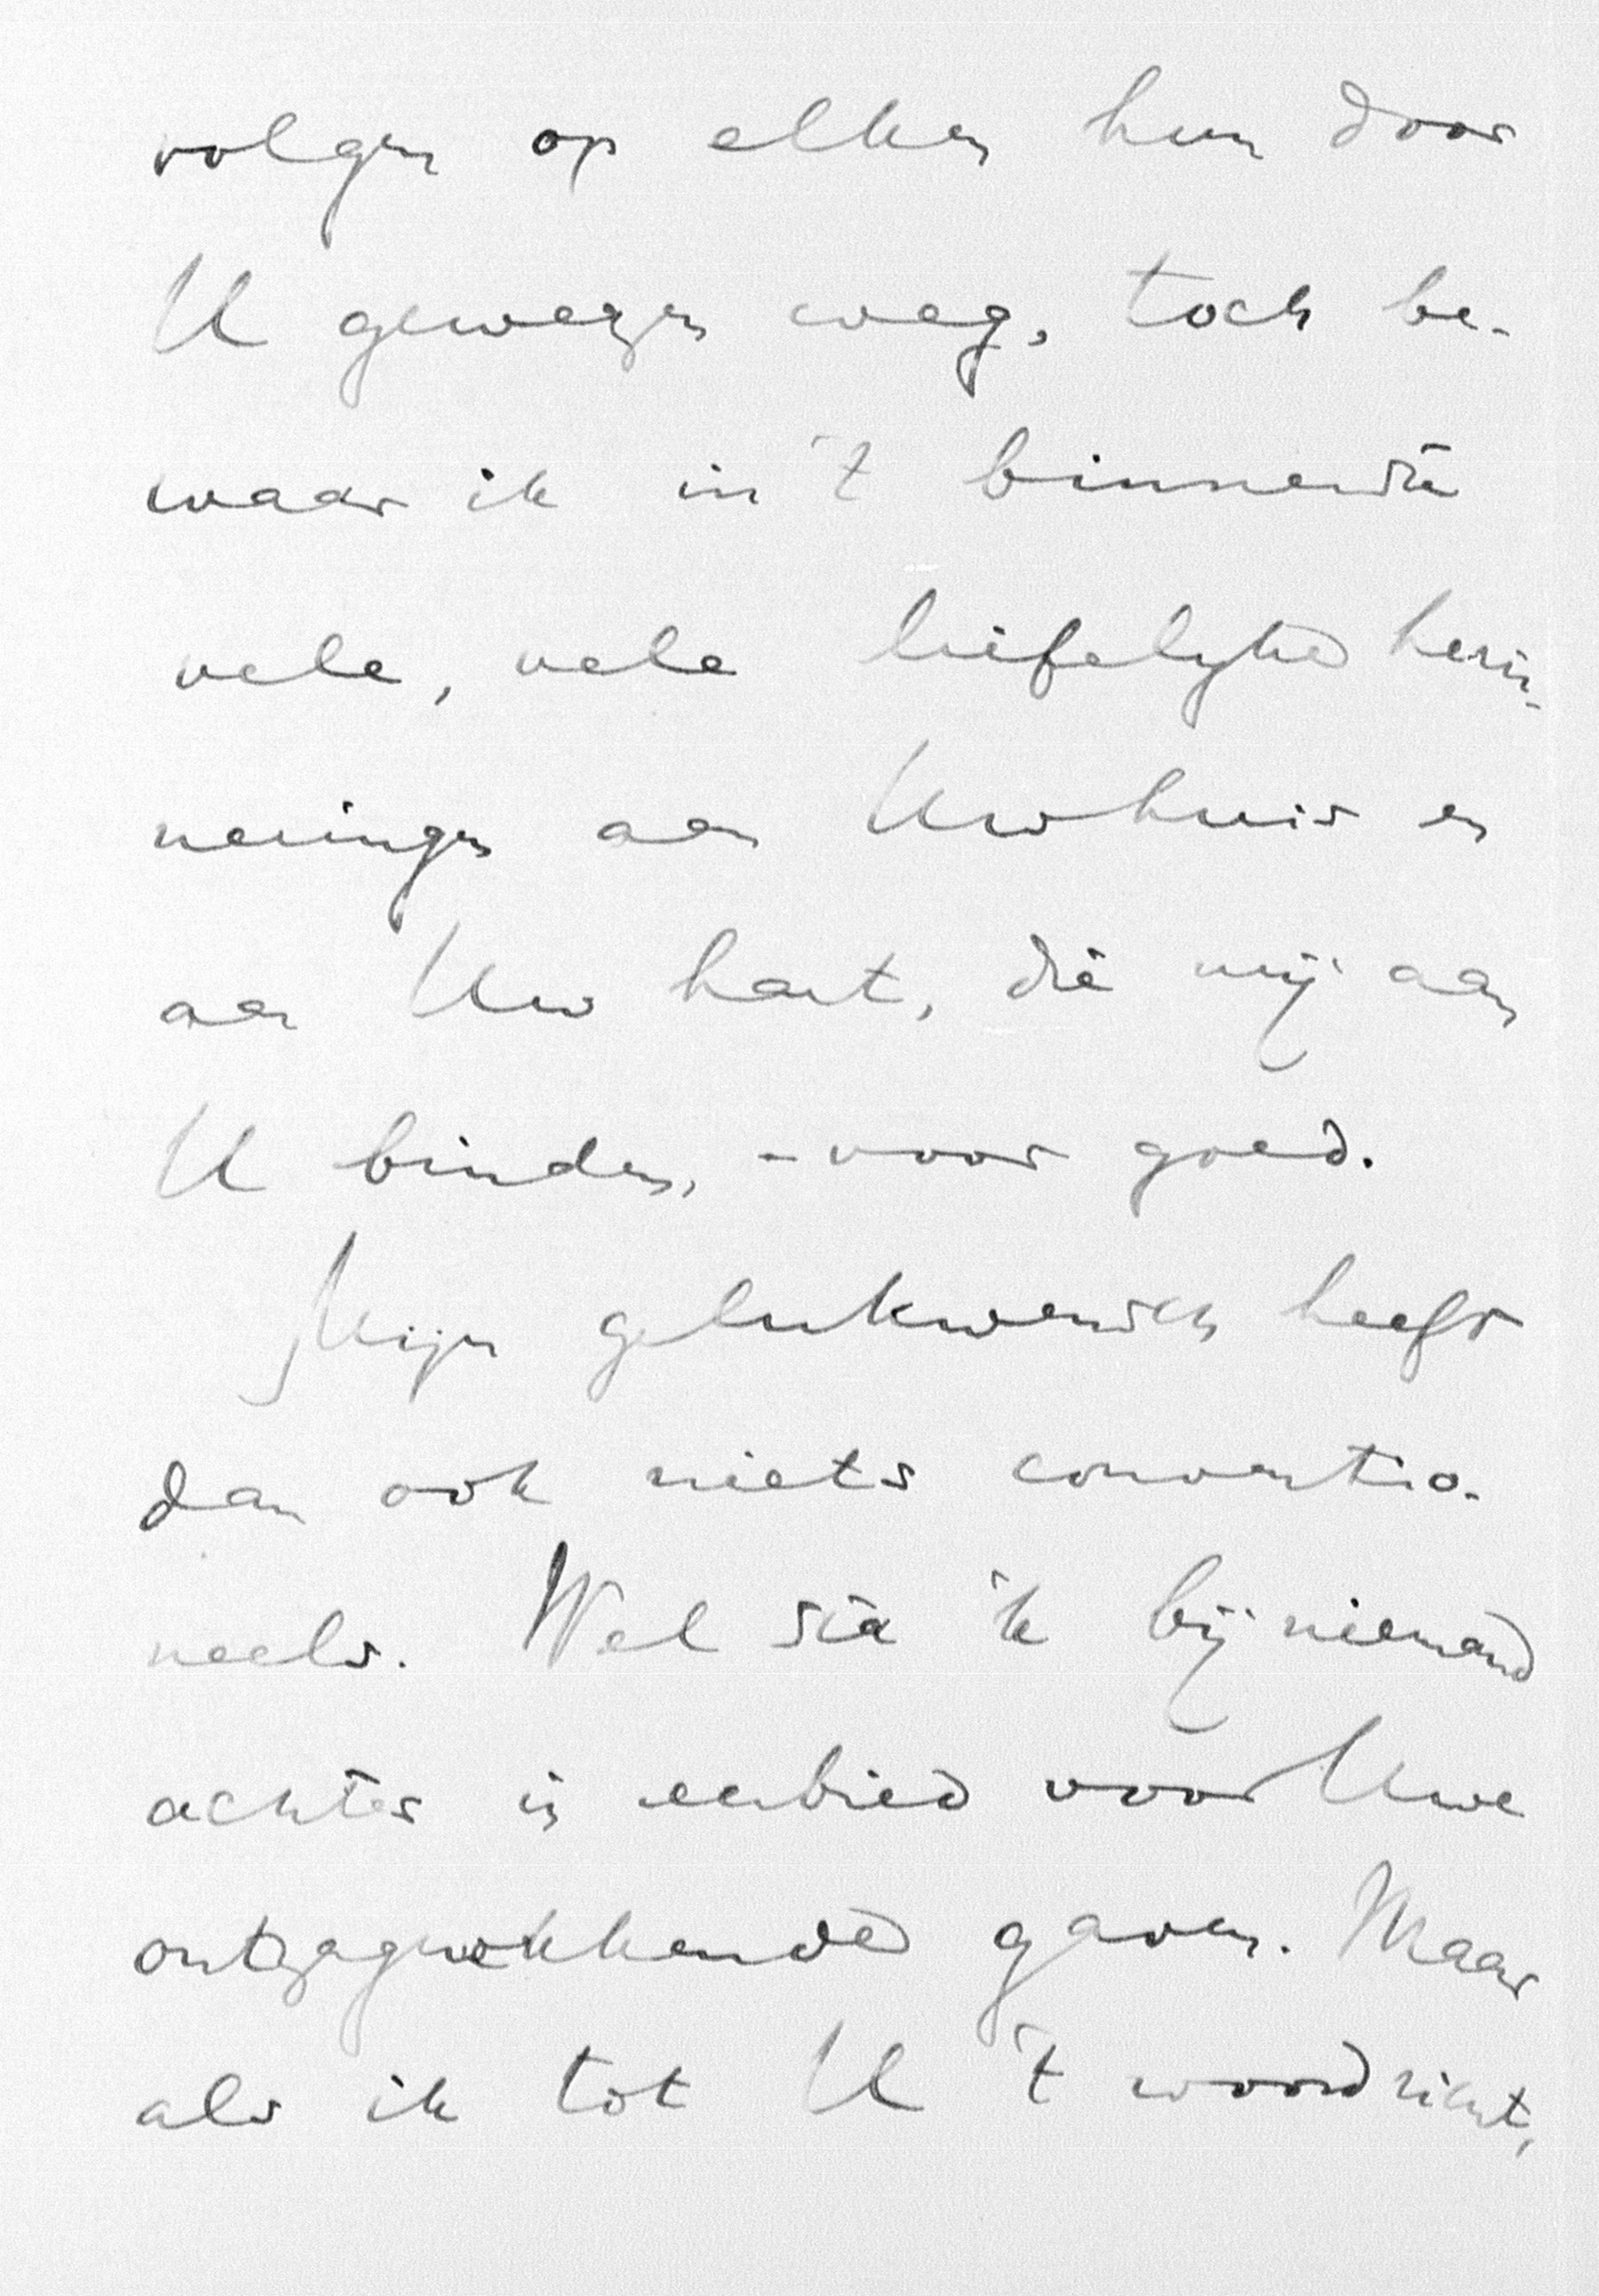 volgen op elken hun door
U gewezen weg, toch be-
waar ik in 't binnenste
vele, vele liefelijke herin-
neringen aan Uw huis en
aan Uw hart, die mij aan
U binden, - voor goed.
Mijn gelukwensch heeft
dan ook niets conventio-
neels. Wel sta ik bij niemand
achter in eerbied voor Uwe
ontzagwekkende gaven. Maar
als ik tot U 't woord richt,